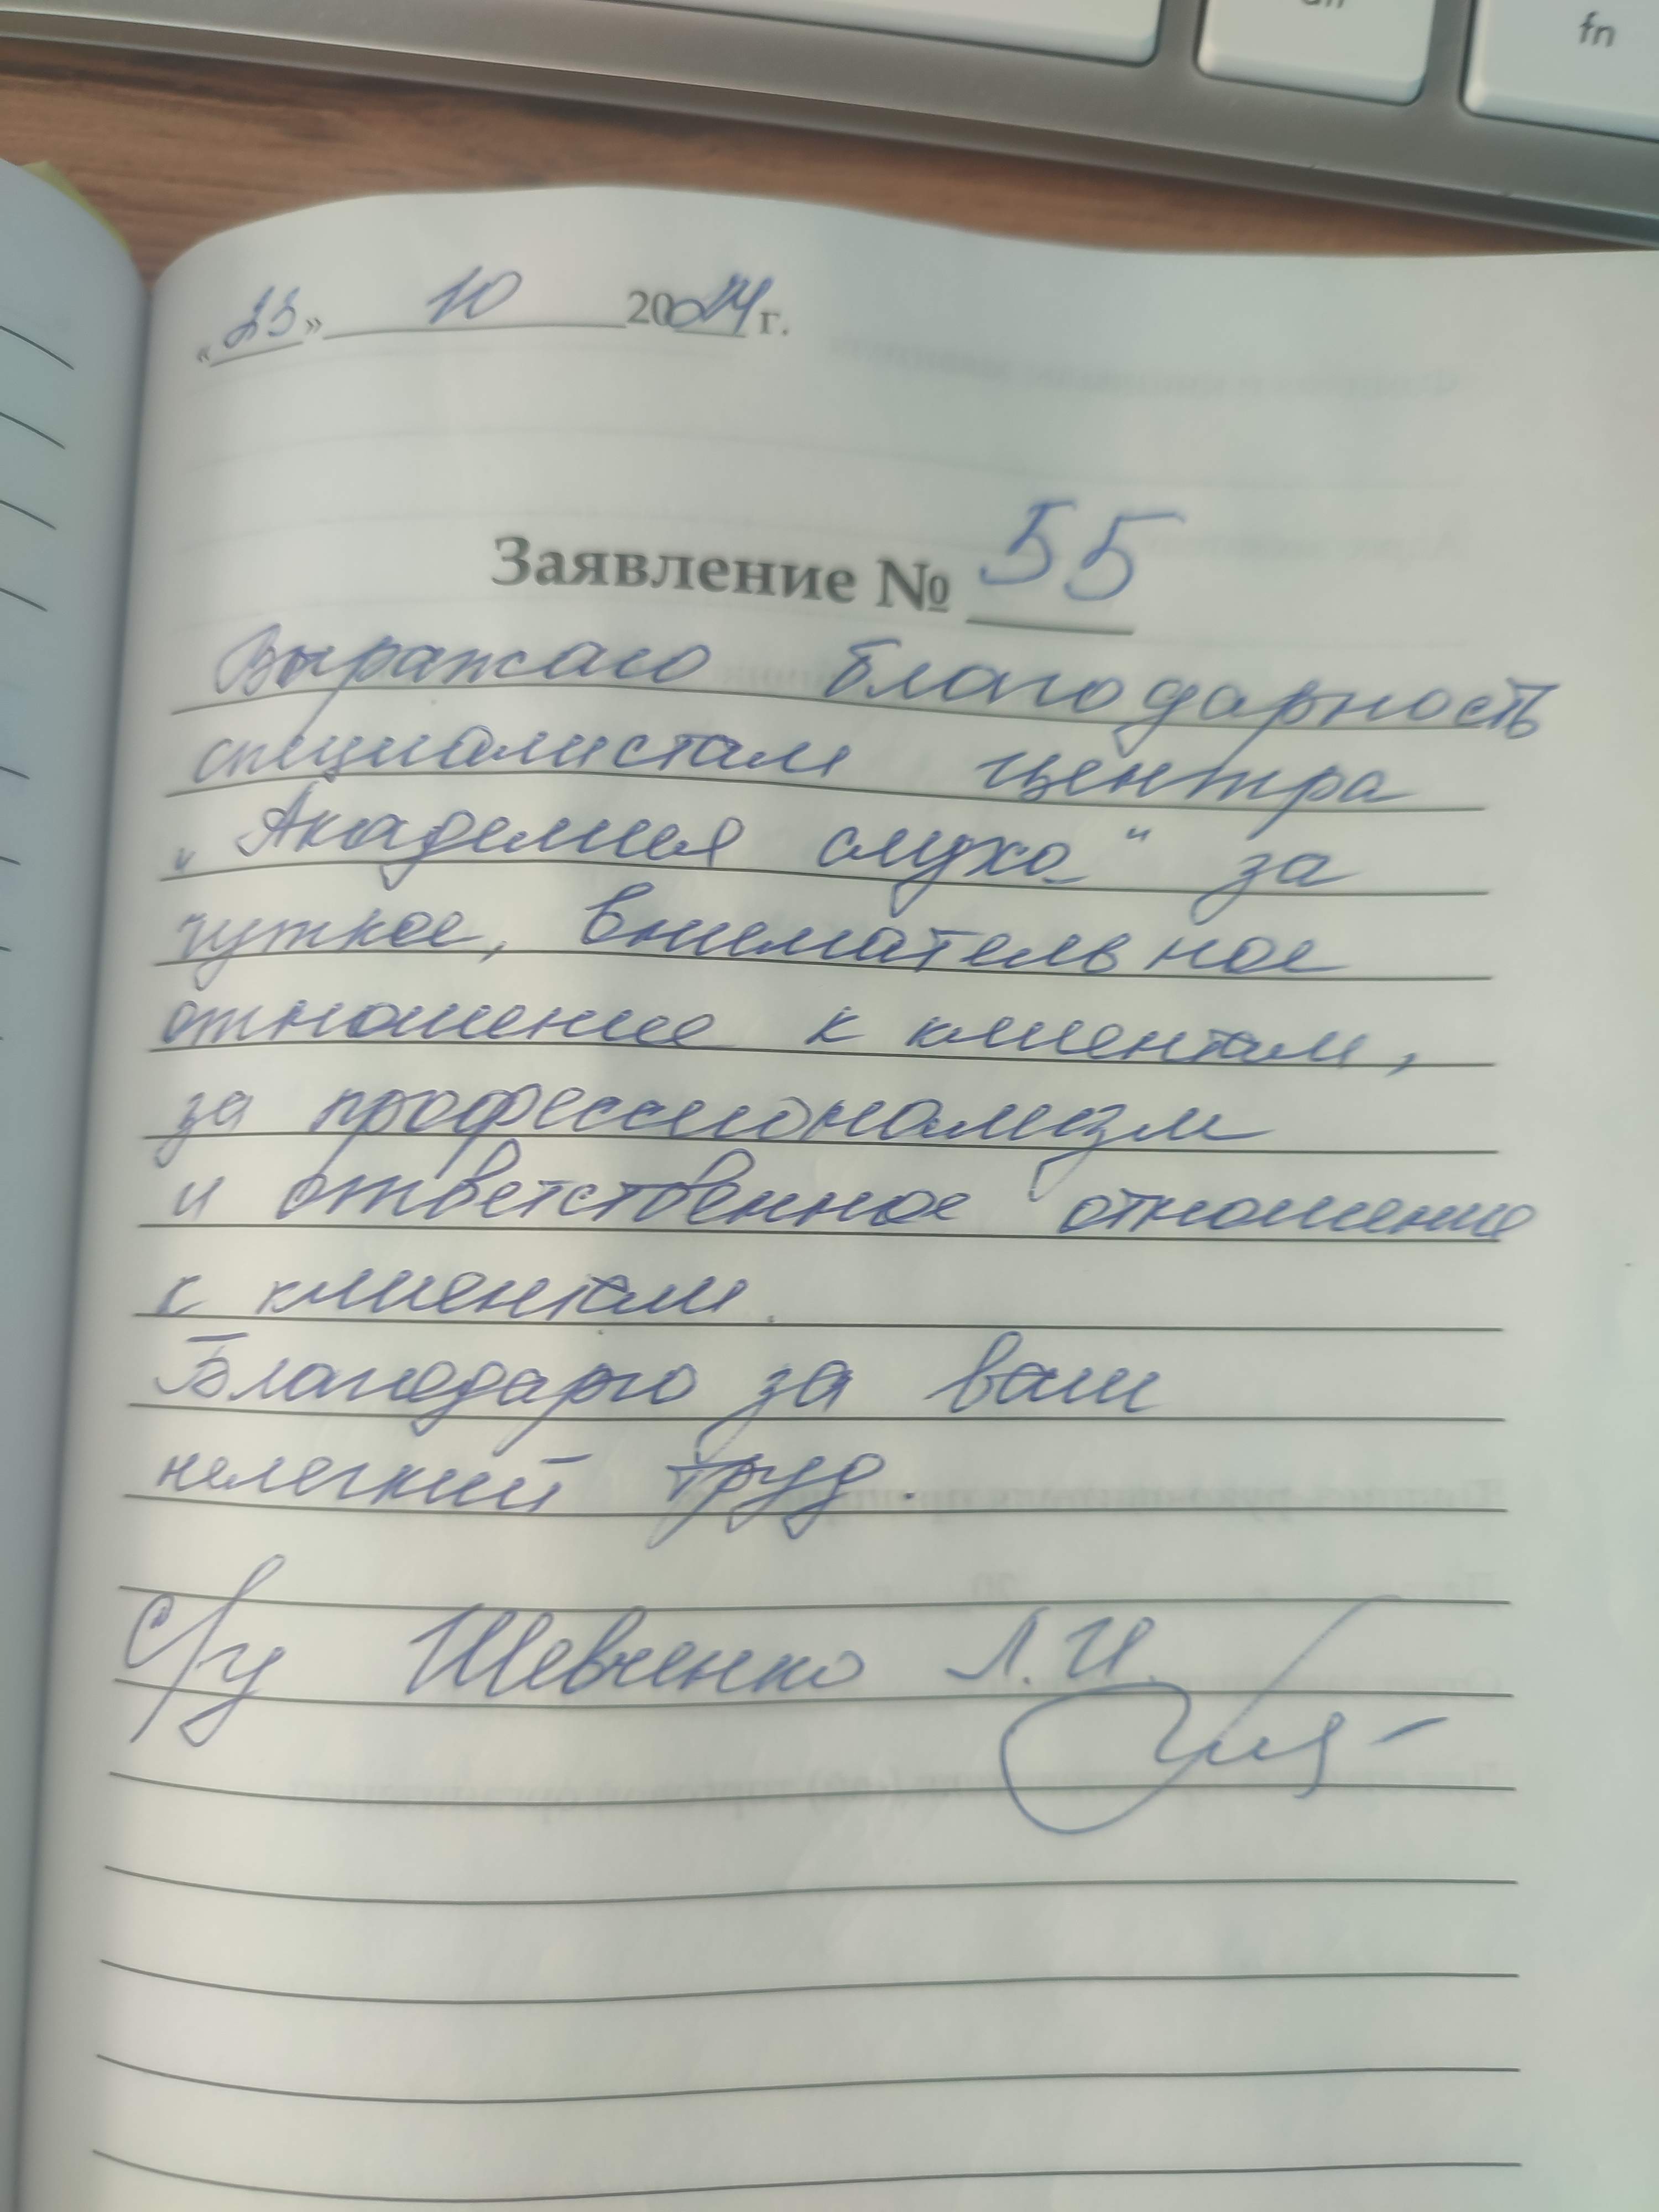 fn
«23» 10 2024 г.
Заявление № 55
Выражаю благодарность
специалистам центра
"Академия слуха" за
чуткое, внимательное
отношение к клиентам,
за профессионализм
и ответственное отношение
к клиентам.
Благодарю за ваш
нелегкий труд.
с/у Шевченко Л.И.